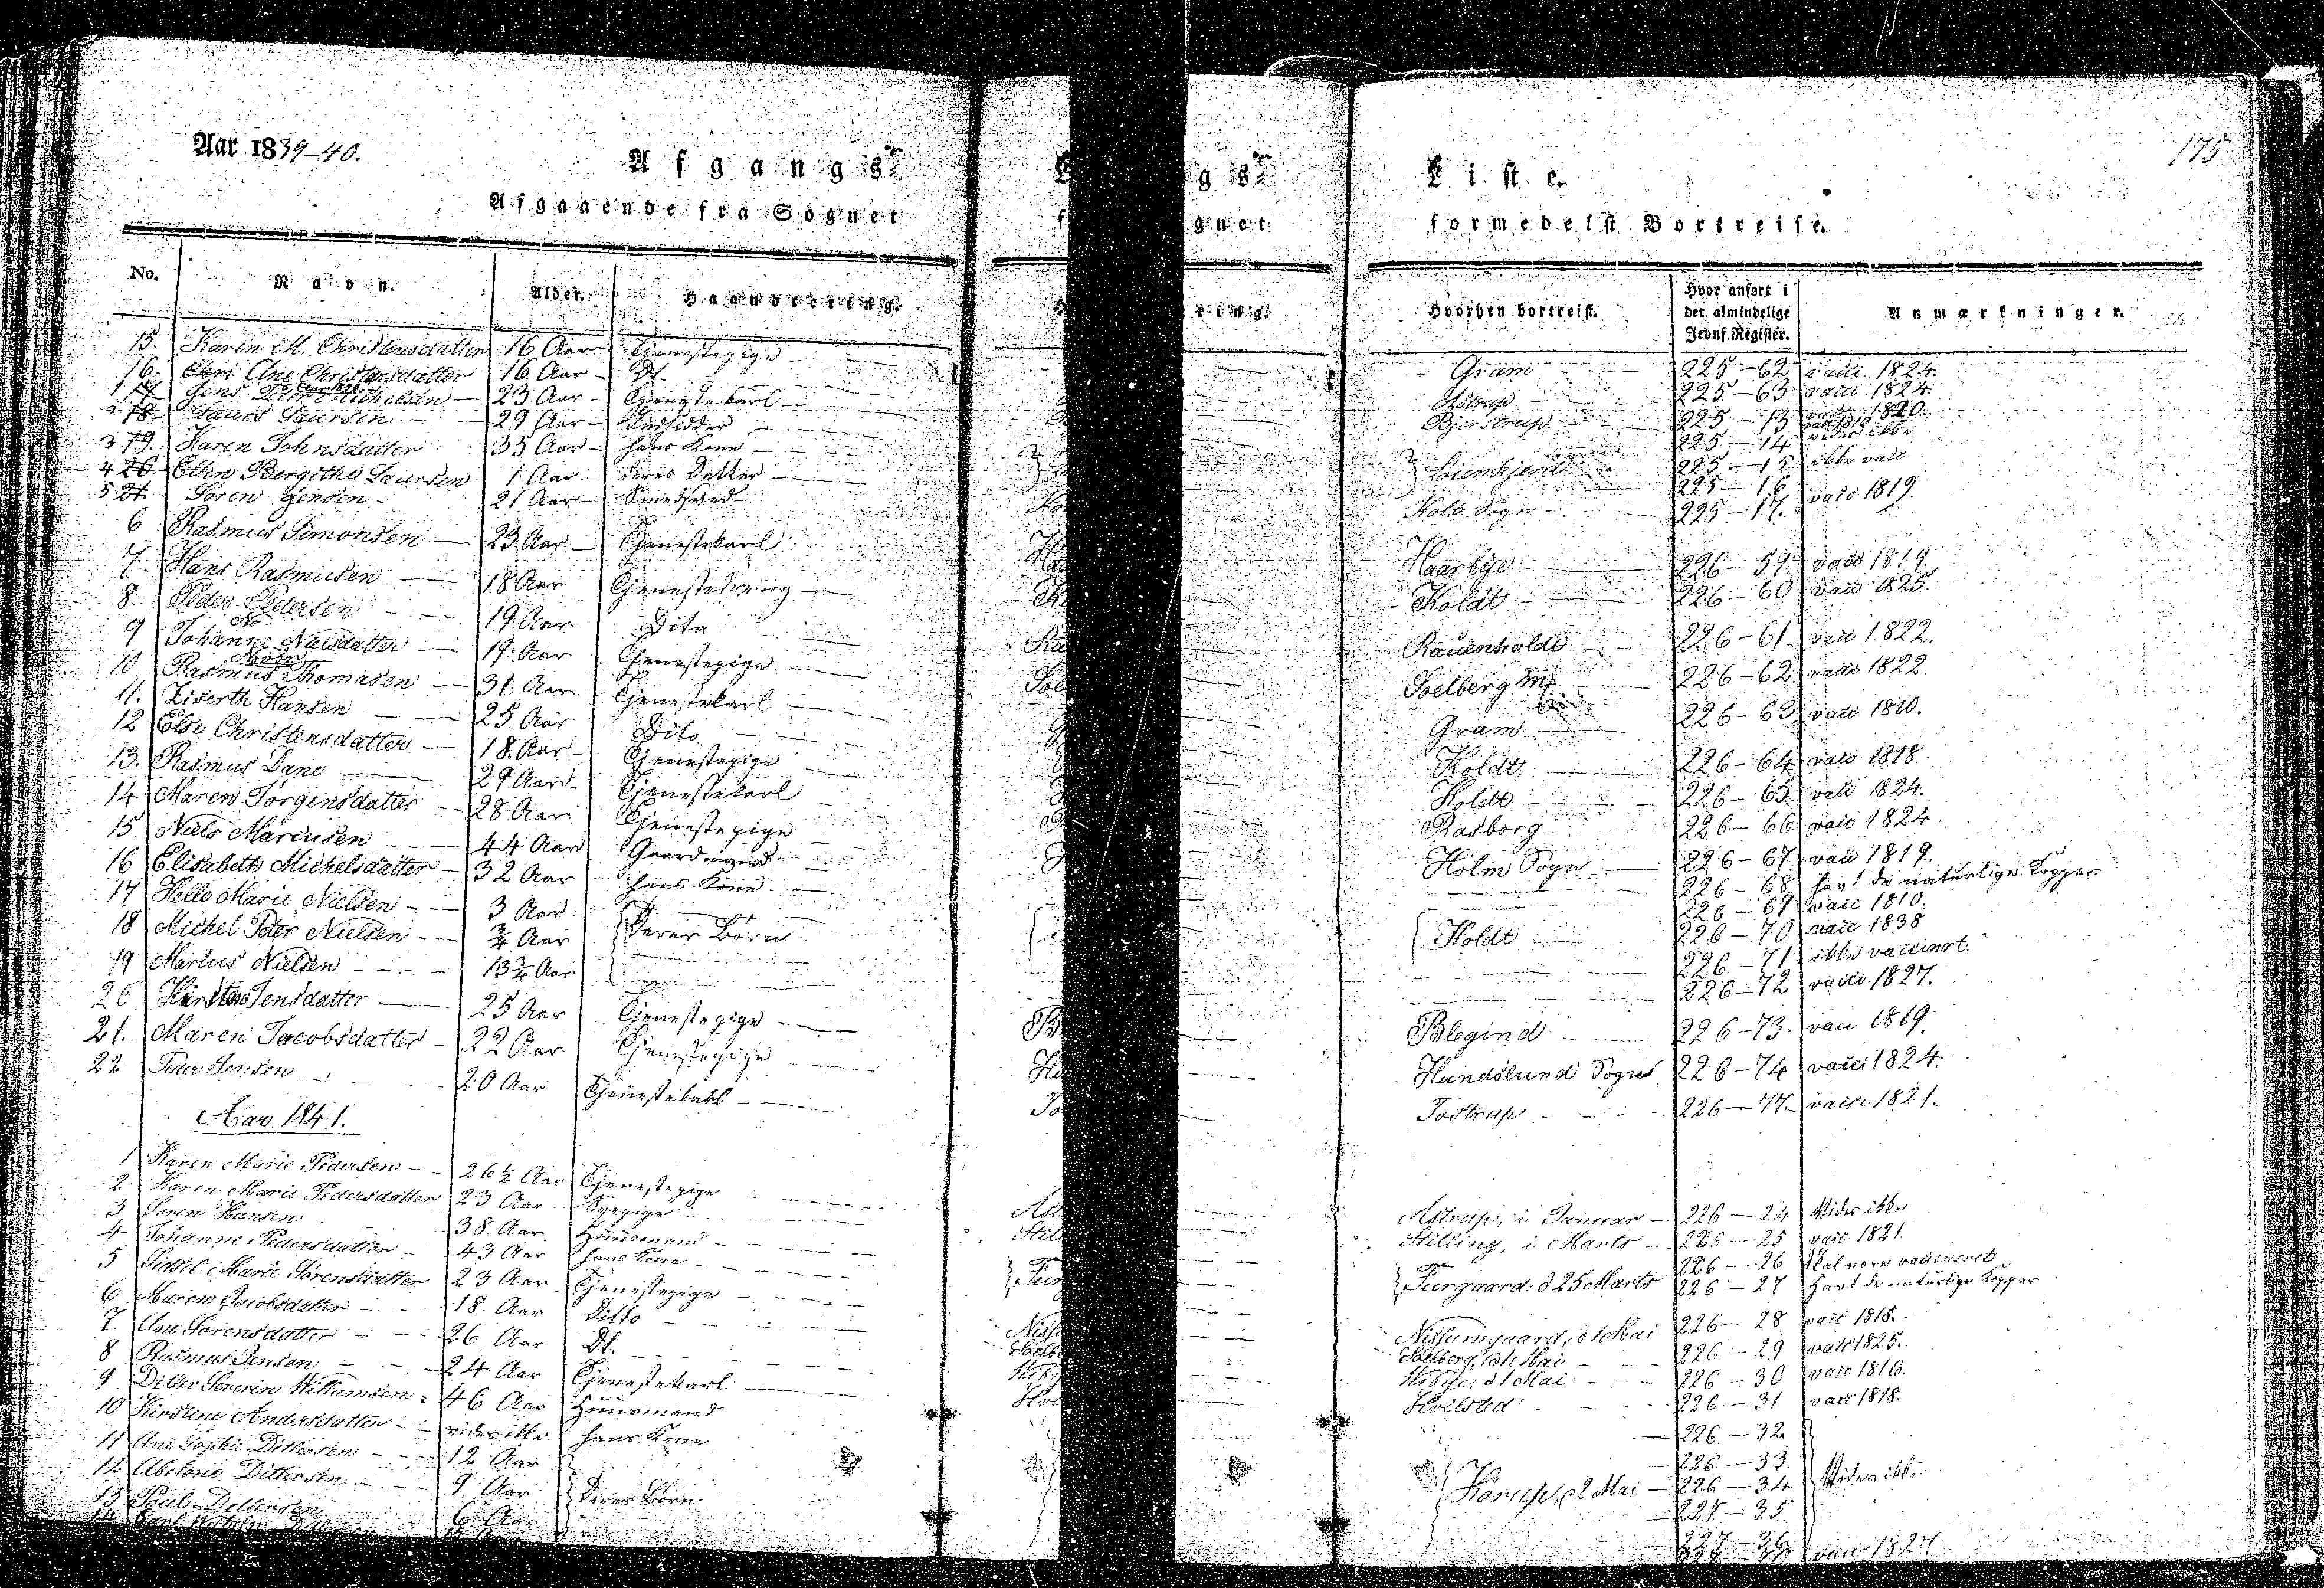 Aar 1839-40.
Afgangs-
Liste.
175
Afgaaende fra Sognet
formedelst Bortreise.
No. Navn. Alder. Haandtering. Hvorhen bortreist. Hvor anført i det almindelige Jevnf. Register. Anmærkninger.
15. Karen M. Christensdatter 16 Aar Tjenestepige Gram 225-62 vacc. 1824.
16. Ane Christensdatter 16 Aar Dt. Astrup 225-63 vacc 1824.
Aar 1840
1 17 Jens Peter Michelsen 23 Aar Tjenestekarl Bjerstrup 225-13
2 18 Laurs Laursen 29 Aar Indsidder 225-14 vides ikke
3 19. Karen Johnsdatter 35 Aar hans Kone 225-15 ikke vacc
4 20. Ellen Bergithe Laursen 1 Aar deres Datter 225-16
5 21. Søren Jensen 21 Aar Smedsvend Kolt Sogn 225-17. vacc 1819.
6 Rasmus Simonsen 23 Aar Tjenestekarl Haarbye 226-59 vacc 1819.
7 Hans Rasmusen 18 Aar Tjenestedreng Koldt 226-60 vacc 1825.
8 Peder Pedersen 19 Aar Dito Rauenholdt 226-61. vacc 1822.
9 Johanne Nielsdatter 19 Aar Tjenestepige Soelberg 226-62 vacc 1822
10 Rasmus Thomasen 31 Aar Tjenestekarl Gram 226-63 vacc 1810.
11. Ziverth Hansen 25 Aar Dito Koldt 226-64 vacc 1818
12 Else Christensdatter 18. Aar Tjenestepige Koldt 226-65 vacc 1824.
13. Rasmus Dane 29 Aar Tjenestekarl Rasborg 226-66 vacc 1824
14 Maren Jørgensdatter 28 Aar Tjenestepige Holm Sogn 226-67 vacc 1819.
15 Niels Marcusen 44 Aar Gaardmand 226-68 havt de naturlige Kopper
16 Elisabeth Michelsdatter 32 Aar hans Kone 226-69 vacc 1810.
17 Helle Marie Nielsen 3 Aar Deres Børn Koldt 226-70 vacc 1838
18 Michel Peter Nielsen ¾ Aar 226-71 ikke vaccineret.
19 Marius Nielsen 13¾ Aar 226-72 vacc 1827.
20 Kirsten Jensdatter 25 Aar Tjenestepige Blegind 226-73. vacc 1819.
21. Maren Jacobsdatter 22 Aar Tjenestepige Hundslund Sogn 226-74 vacc 1824.
22 Peder Jensen 20 Aar Tjenestekarl Tostrup 226-77. vacc 1821.
Aar 1841.
1 Karen Marie Pedersen 26½ Aar Tjenestepige Astrup, i Januar 226-24 Vides ikke
2 Karen Marie Pedersdatter 23 Aar Sypige Stilling, i Marts 226-25 vacc 1821.
3 Søren Hansen 38 Aar Huusmand 226-26 Skal være vaccineret
4 Johanne Pedersdatter 43 Aar hans Kone d 25 Marts 226-27 Havt de naturlige Kopper
5 Sidsel Marie Sørensdatter 23 Aar Tjenestepige d 1 Mai 226-28 vacc 1818.
6 Maren Jacobsdatter 18 Aar Ditto Soelberg, d 1 Mai 226-29 vacc 1825.
7. Ane Sørensdatter 26 Aar Dt. Wibye, d 1 Mai 226-30 vacc 1816.
8 Rasmus Jensen 24 Aar Tjenestekarl Hvilsted 226-31 vacc 1818.
9 Ditlev Severin Willumsen 46 Aar Huusmand 226-32
10 Kirstine Andersdatter vides ikke hans Kone 226-33
11 Ane Sophie Ditlevsen 12 Aar Deres Børn Kørup, d 2 Mai 226-34 Vides ikke
12 Abelone Ditlevsen 9 Aar 227-35
13 Poul Ditlevsen 6 Aar 227-36
14 vacc 1827